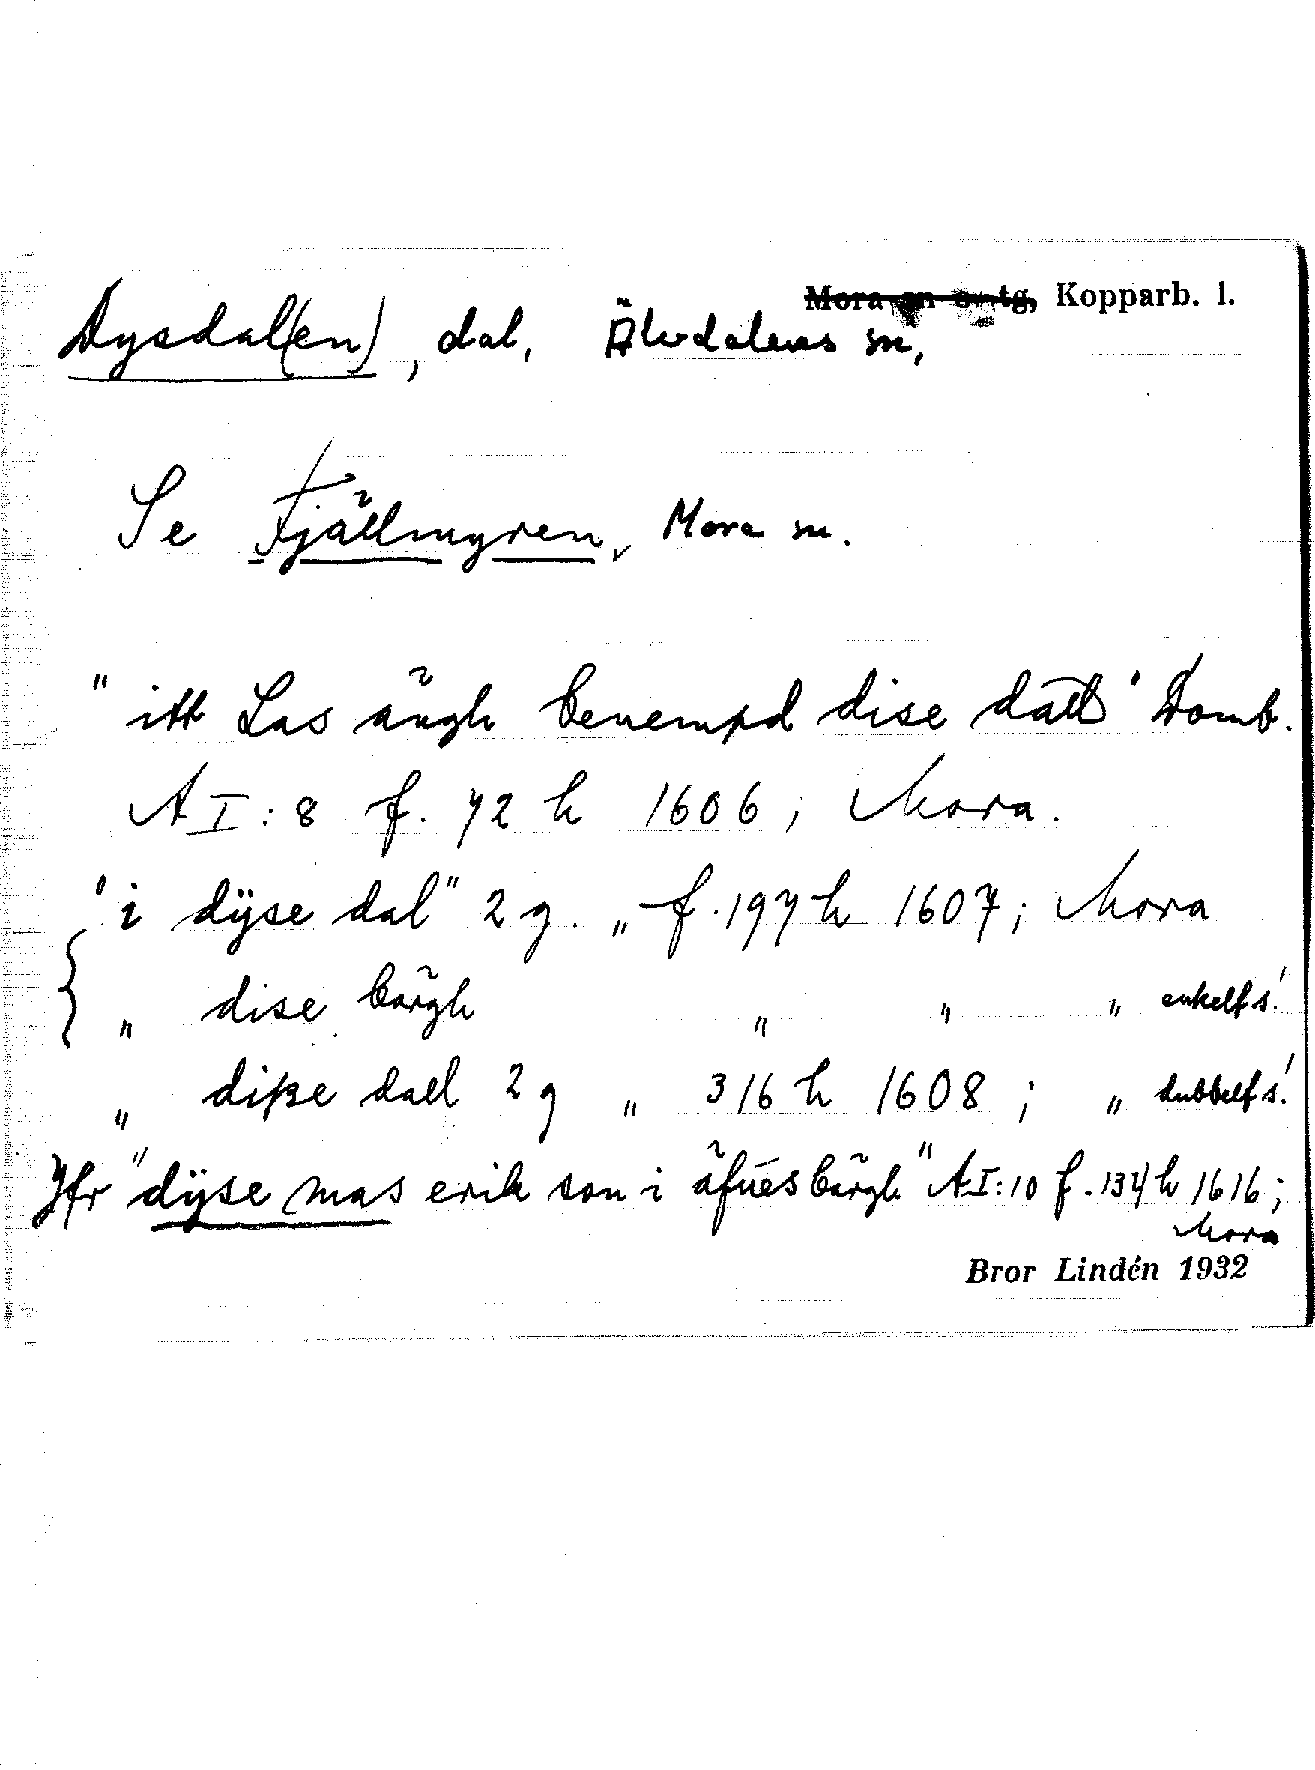 Mora sn o. tg, Kopparb. l.
Dysdal(en), dal, Älvdalens sn,
Se Fjällmyren, Mora sn.
"itt Las ängh benempd dise dall" Domb.
A I:8 f. 72 h 1606; Mora.
"i dÿse dal" 2 g. „ f. 197 h 1607; Mora
„ dise bärgh „ „ „ enkelf s!
„ diſze dall 2 g „ 316 h 1608; „ dubbelf s!
Jfr "dÿse mas erik son i äfnesbärgh" A I:10 f. 134 h 1616;
Mora
Bror Lindén 1932